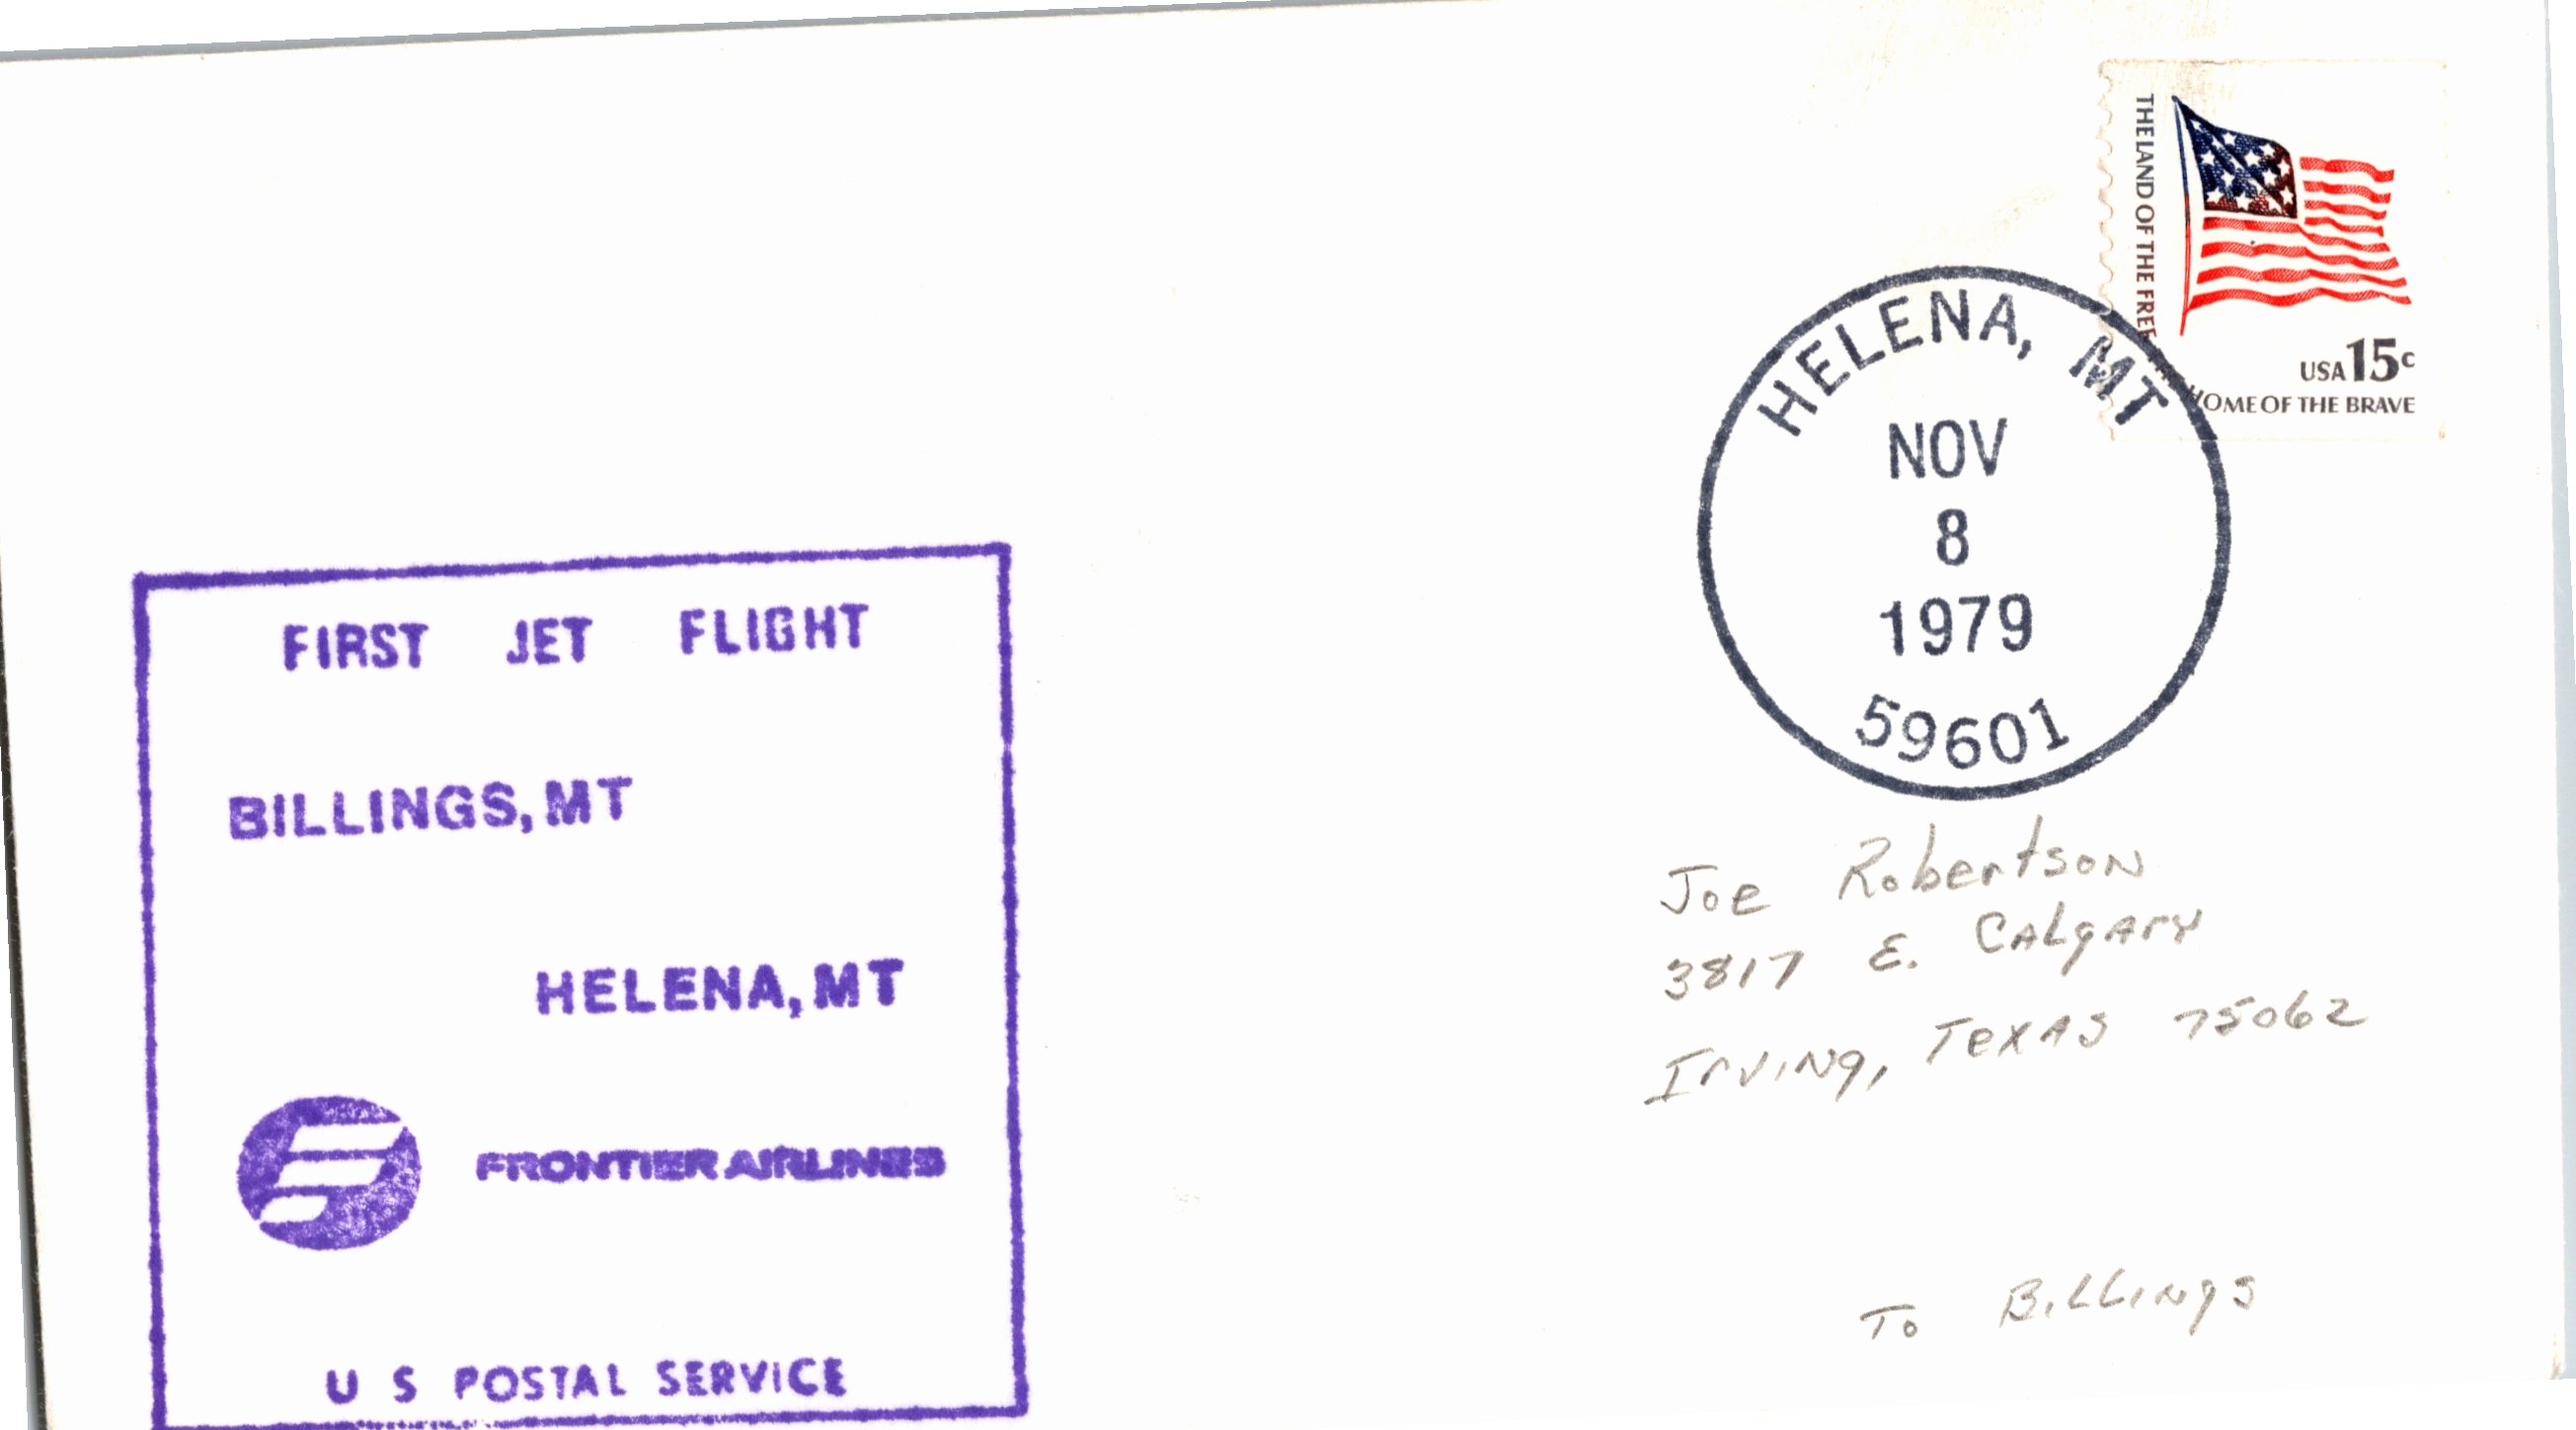 THE LAND OF THE FREE
USA 15c
HOME OF THE BRAVE
HELENA, MT
NOV
8
1979
59601
FIRST JET FLIGHT
BILLINGS, MT
HELENA, MT
FRONTIER AIRLINES
U S POSTAL SERVICE
Joe Robertson
3817 E. Calgary
Irving, Texas 75062
To Billings